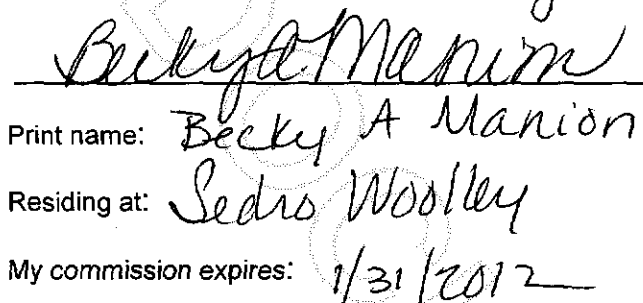 Becky A Manion
Print name: Becky A Manion
Residing at: Sedro Woolley
My commission expires: 1/31/2012